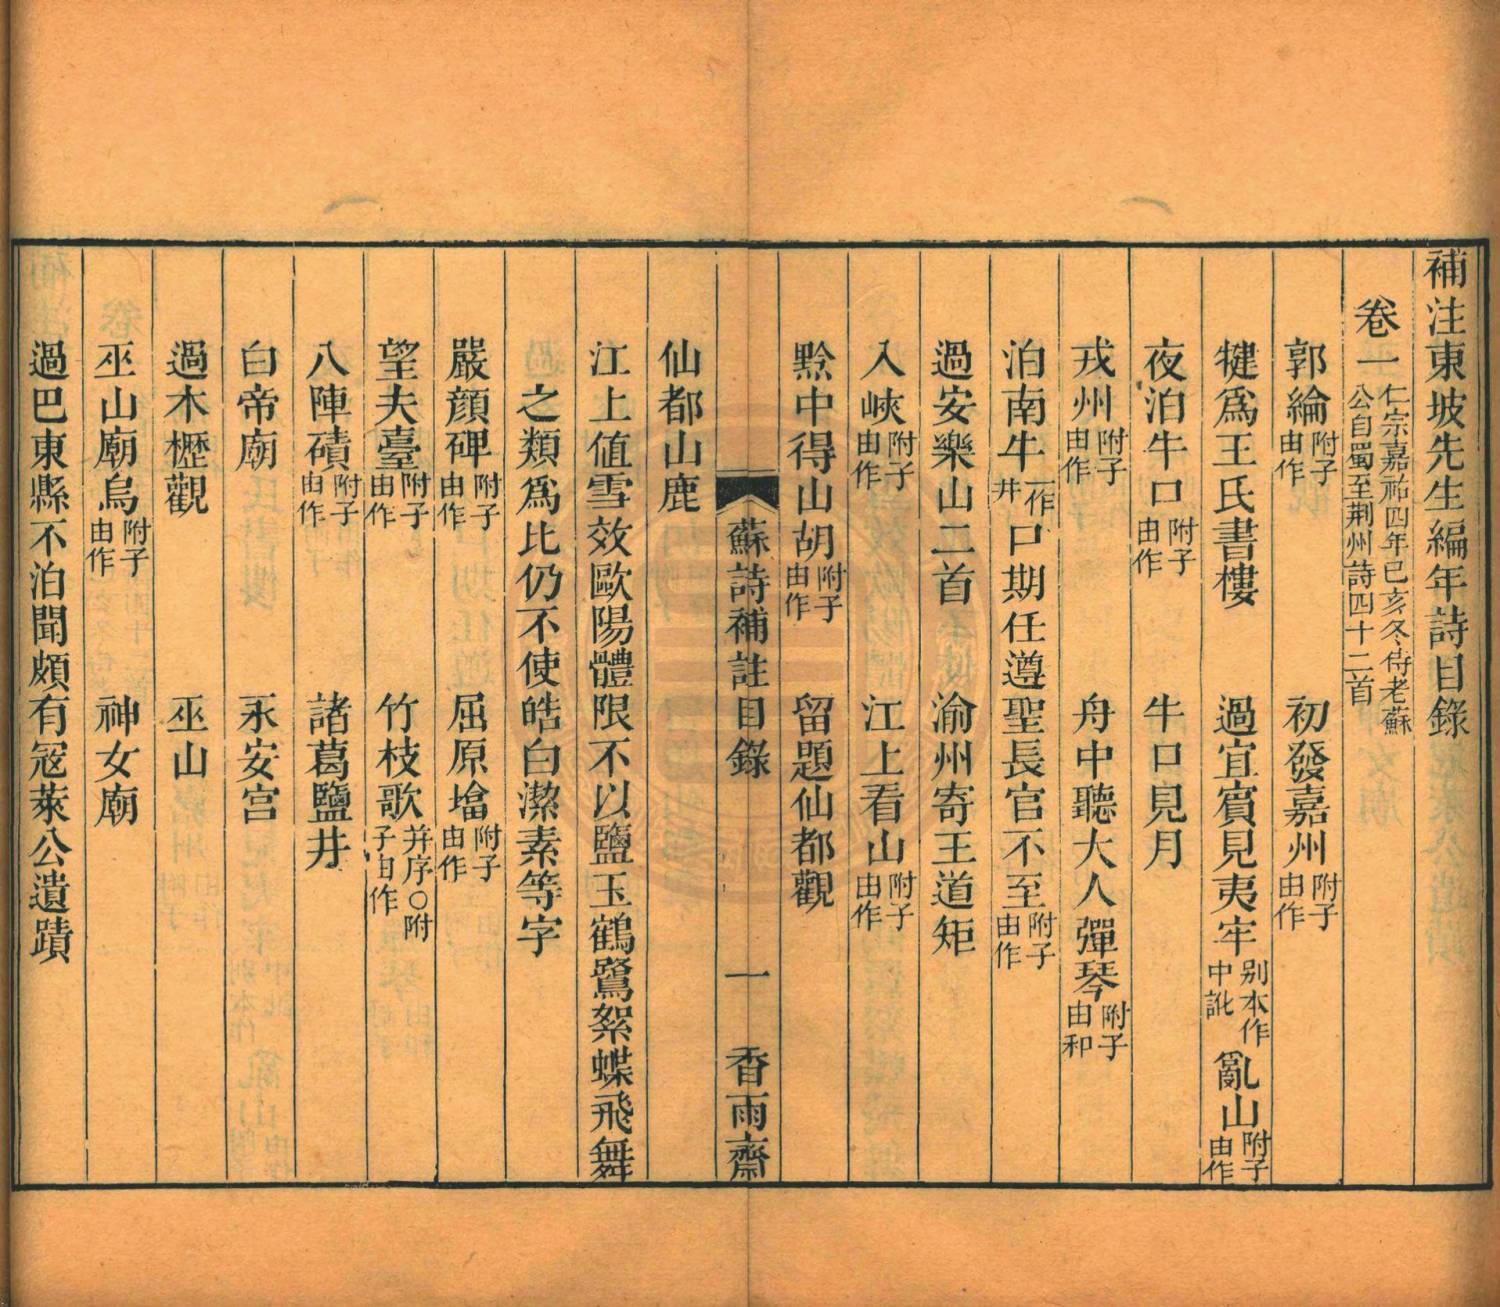 補注東坡先生編年詩目錄
卷一仁宗嘉祐四年己亥冬侍老蘇公自蜀至荆州詩四十二首
郭綸附子由作　初發嘉州附子由作
犍爲王氏書樓　過宜賓見夷牢别本作中訛亂山附子由作
夜泊牛口附子由作　牛口見月
戎州附子由作　舟中聽大人彈琴附子由和
泊南牛一作井口期任遵聖長官不至附子由作
過安樂山二首　渝州寄王道矩
入峽附子由作　江上看山附子由作
黙中得山胡附子由作　留題仙都觀
蘇詩補註目錄　一　香雨齋
仙都山鹿
江上值雪效歐陽體限不以鹽玉鶴鷺絮蝶飛舞
之類爲比仍不使皓白潔素等字
嚴顔碑附子由作　屈原墖附子由作
望夫臺附子由作　竹枝歌并序○附子由作
八陣磧附子由作　諸葛鹽井
白帝廟　永安宫
過木櫪觀　巫山
巫山廟烏附子由作　神女廟
過巴東縣不泊聞頗有寇萊公遺蹟